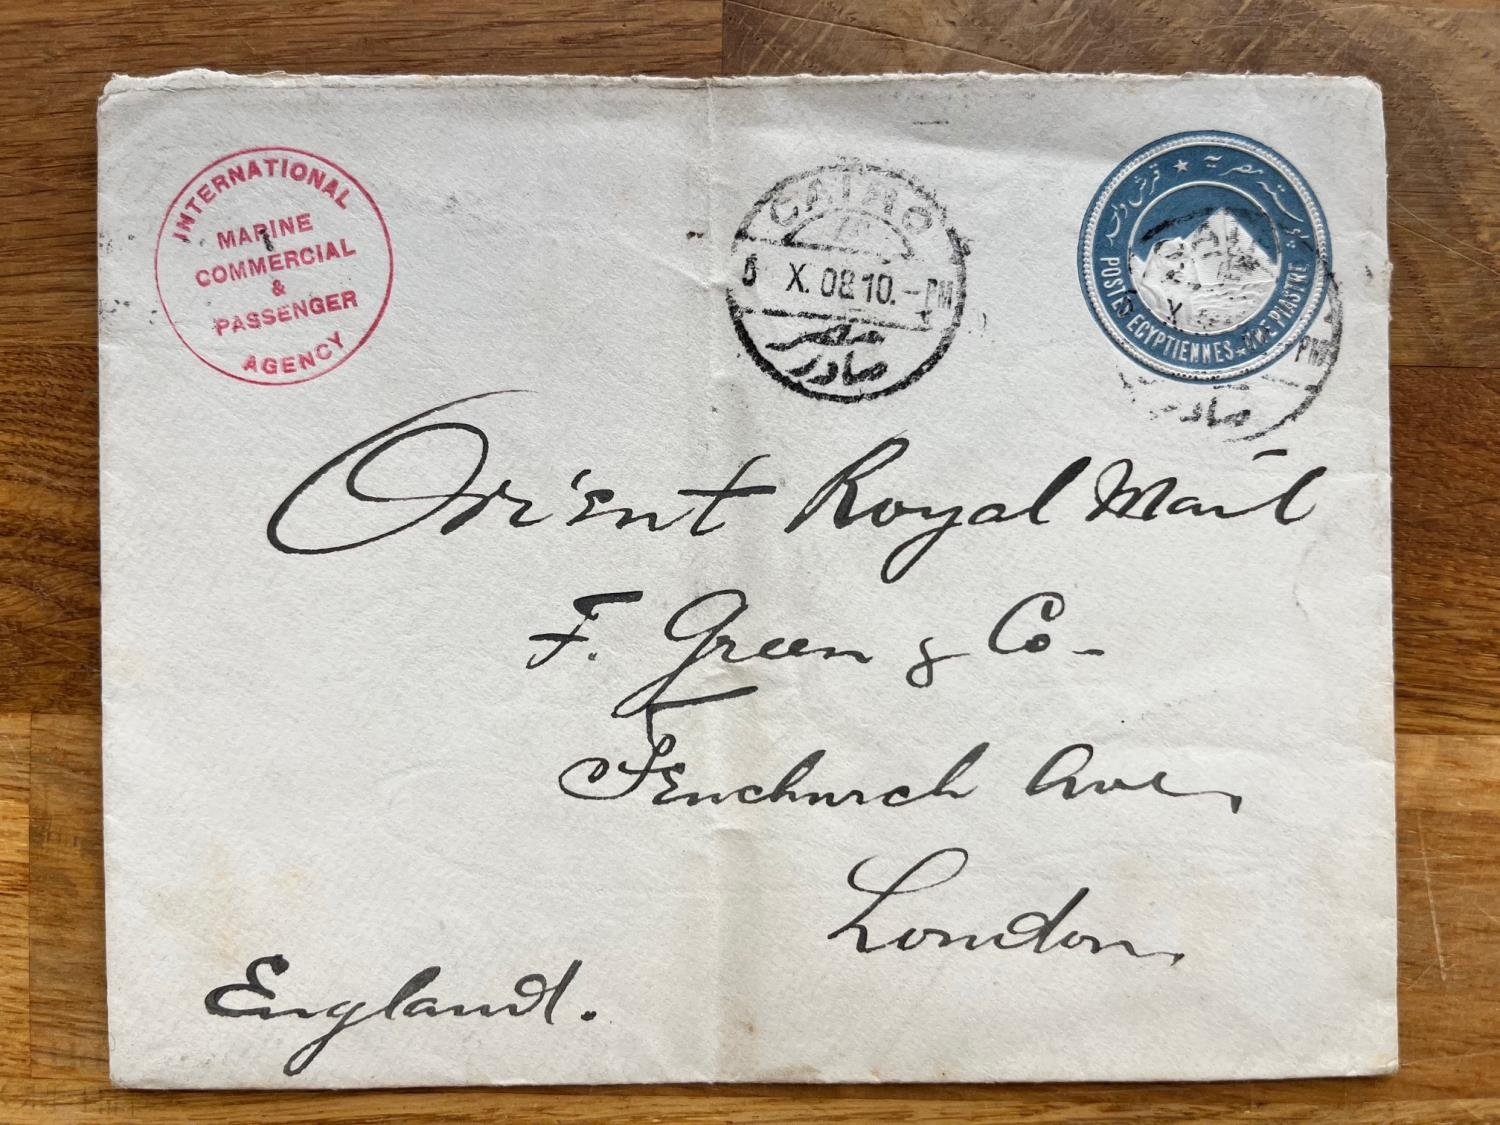 INTERNATIONAL
MARINE
COMMERCIAL
&
PASSENGER
AGENCY
CAIRO
X. 08 10.-PM
مصر
صادر
بوستة مصرية ★ قرش واحد
POSTES EGYPTIENNES ONE PIASTRE
X
PM
صادر
Orient Royal Mail
F. Green & Co-
Fenchurch Ave,
London,
England.